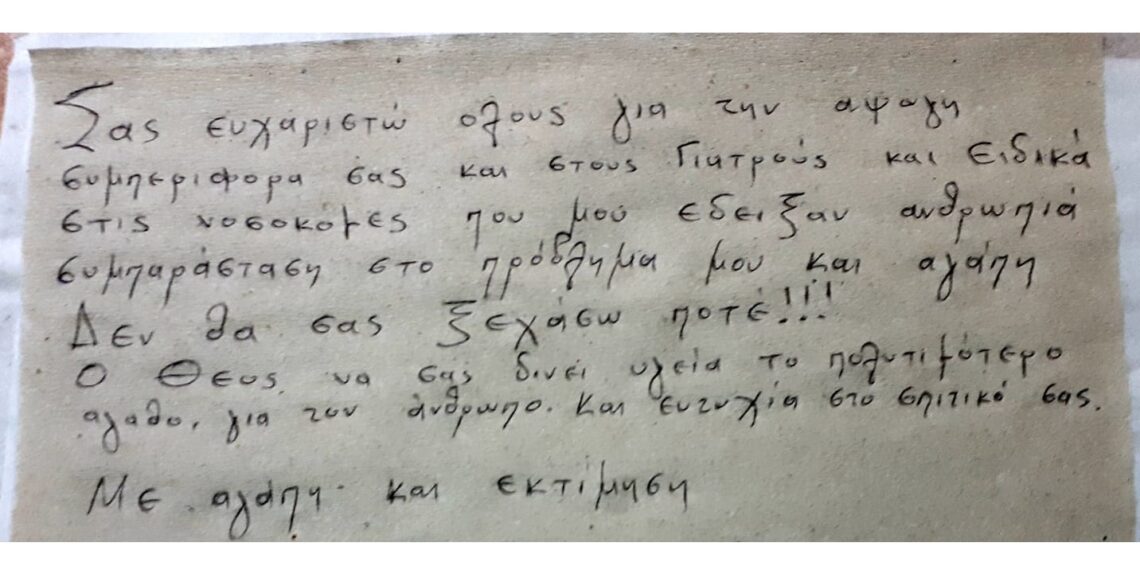 Σας ευχαριστώ ολους για την αψογη
συμπεριφορα σας και στους Γιατρούς και Ειδικά
στις νοσοκόμες που μου εδειξαν ανθρωπιά
συμπαράσταση στο πρόβλημα μου και αγάπη
Δεν θα σας ξεχάσω ποτέ!!!
Ο Θεος. να σας δινει υγεία το πολυτιμότερο
αγαθο. για τον άνθρωπο. και ευτυχία στο σπιτικό σας.
Με αγάπη και εκτίμηση